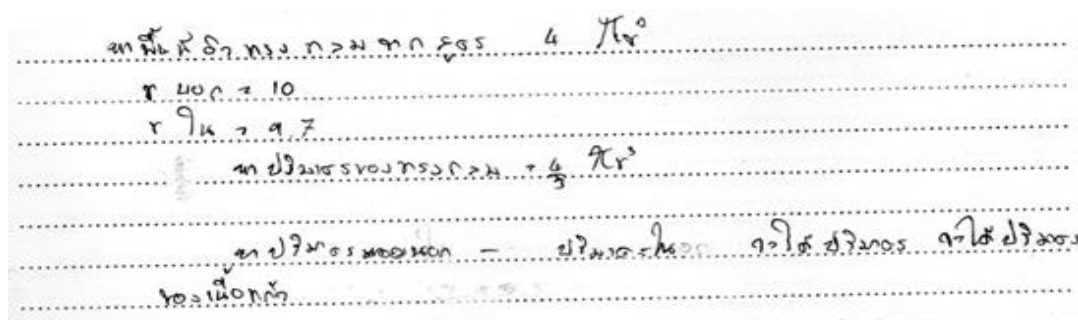 หาพื้นที่ผิวทรงกลมจากสูตร 4 πr²
r นอก = 10
r ใน = 9.7
หาปริมาตรของทรงกลม = 4/3 πr³
หาปริมาตรนอก - ปริมาตรใน จะได้ปริมาตร จะได้ปริมาตร
ของเนื้อ